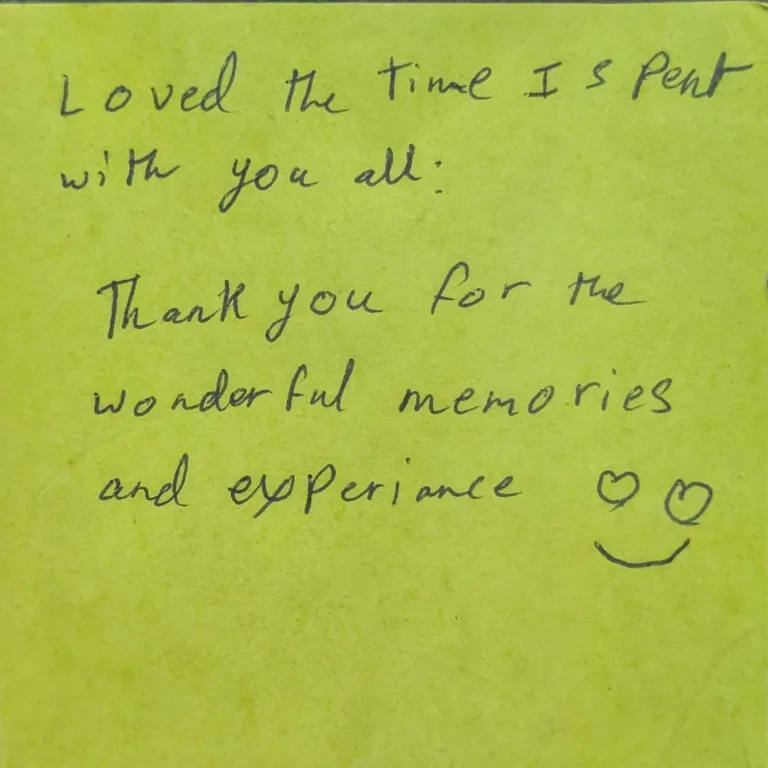 Loved the time I spent
with you all:
Thank you for the
wonderful memories
and experiance